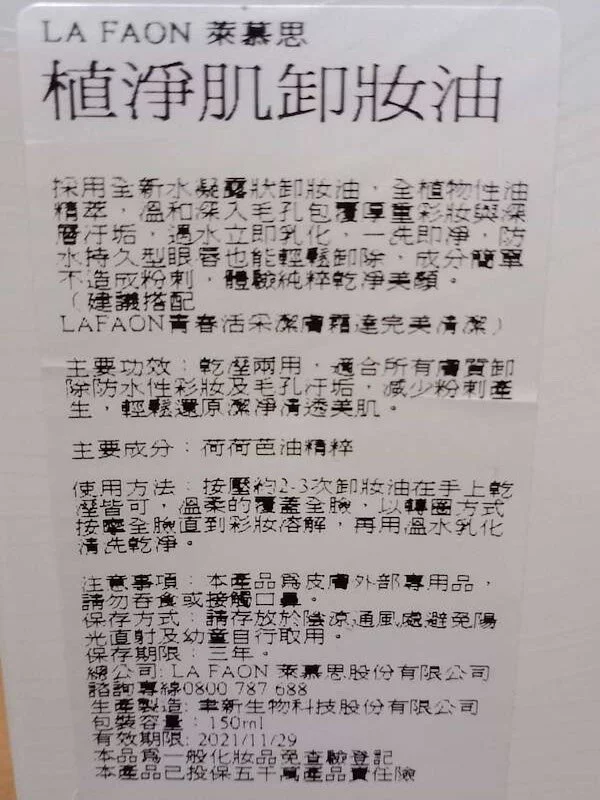 LA FAON 萊慕思
植淨肌卸妝油
採用全新水凝露狀卸妝油，全植物性油
精萃，溫和深入毛孔包覆厚重彩妝與深
層汙垢，遇水立即乳化，一洗即淨，防
水持久型眼唇也能輕鬆卸除，成分簡單
不造成粉刺，體驗純粹乾淨美顏。
（建議搭配
LAFAON青春活采潔膚霜達完美清潔）
主要功效：乾溼兩用，適合所有膚質卸
除防水性彩妝及毛孔汙垢，減少粉刺產
生，輕鬆還原潔淨清透美肌。
主要成分：荷荷芭油精粹
使用方法：按壓約2-3次卸妝油在手上乾
溼皆可，溫柔的覆蓋全臉，以轉圈方式
按摩全臉直到彩妝溶解，再用溫水乳化
清洗乾淨。
注意事項：本產品爲皮膚外部專用品，
請勿吞食或接觸口鼻。
保存方式：請存放於陰涼通風處避免陽
光直射及幼童自行取用。
保存期限：三年。
總公司: LA FAON 萊慕思股份有限公司
諮詢專線0800 787 688
生產製造: 聿新生物科技股份有限公司
包裝容量：150ml
有效期限: 2021/11/29
本品爲一般化妝品免查驗登記
本產品已投保五千萬產品責任險